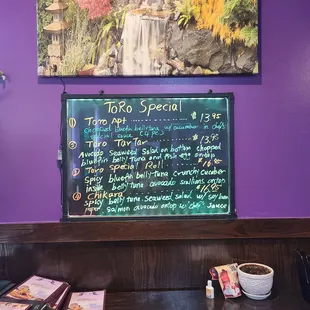 ToRo Special
① Toro Apt $13.95
chopped bluefin belly tuna w/ cucumber in chef's
special sauce
② Toro TarTar $13.95
Avocado Seaweed Salad on bottom chopped
bluefin belly tuna and fish egg ontop
③ Toro Special Roll $16.95
Spicy bluefin belly tuna crunchy cucumber
inside belly tuna avocado scallions ontop
④ Chikara $16.95
spicy belly tuna seaweed salad w/ soybean
paper Salmon avocado ontop w/ chef Sauce